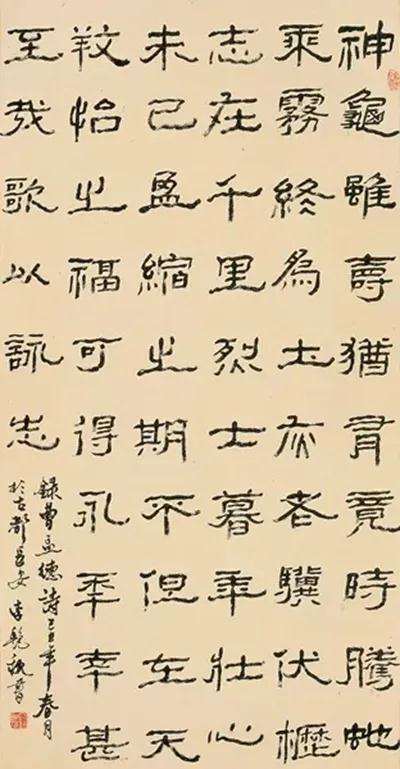 神龜雖壽猶有竟時騰虵
乘霧終為土灰老驥伏櫪
志在千里烈士暮年壯心
未已盈縮之期不但在天
養怡之福可得永年幸甚
至哉歌以詠志
錄曹孟德詩己丑年春月
於古都長安李書